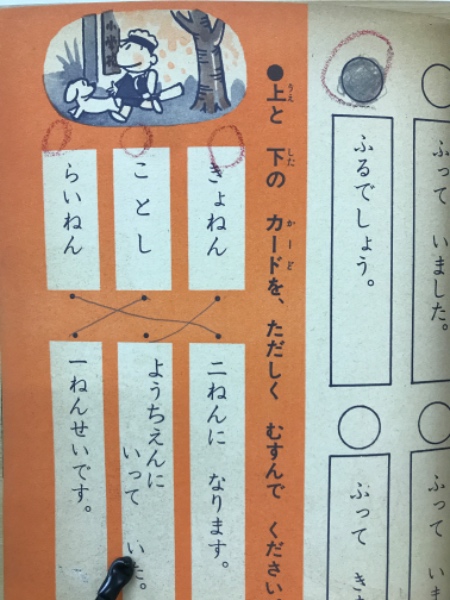 ふって いました。
ふって
ふるでしょう。
ふって
●上と 下の カードを、ただしく むすんで ください
きょねん
ことし
らいねん
二ねんに なります。
ようちえんに
いって
一ねんせいです。
小学校